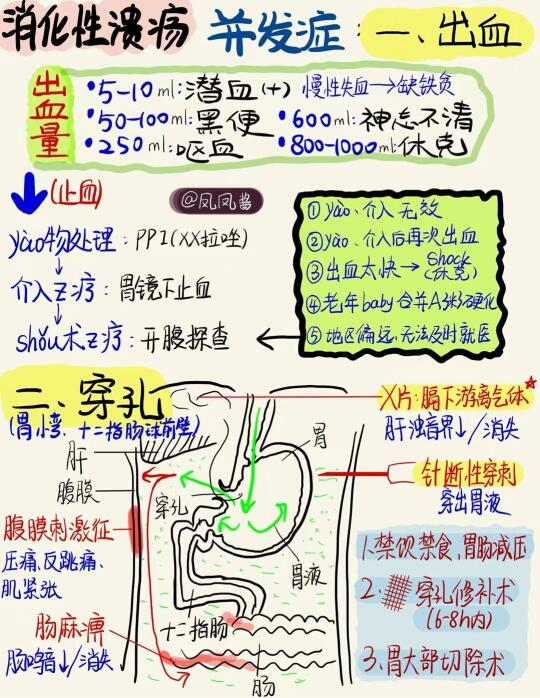 消化性溃疡 并发症:一、出血
出血量
•5-10ml:潜血(+) 慢性失血→缺铁贫
•50-100ml:黑便 •600ml:神志不清
•250ml:呕血 •800-1000ml:休克
(止血)
@凤凤酱
yào物处理:PPI(XX拉唑)
介入Z疗:胃镜下止血
shǒu术Z疗:开腹探查
①yào、介入无效
②yào、介入后再次出血
③出血太快→Shock(休克)
④老年baby合并A粥硬化
⑤地区偏远,无法及时就医
二、穿孔
(胃小弯、十二指肠球前壁)
肝
腹膜
腹膜刺激征
压痛、反跳痛、
肌紧张
肠麻痹
肠鸣音↓/消失
穿孔
胃
胃液
十二指肠
肠
X片:膈下游离气体
肝浊音界↓/消失
诊断性穿刺
穿出胃液
1.禁饮禁食,胃肠减压
2.穿孔修补术
(6-8h内)
3.胃大部切除术